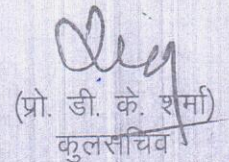 (प्रो. डी. के. शर्मा)
कुलसचिव